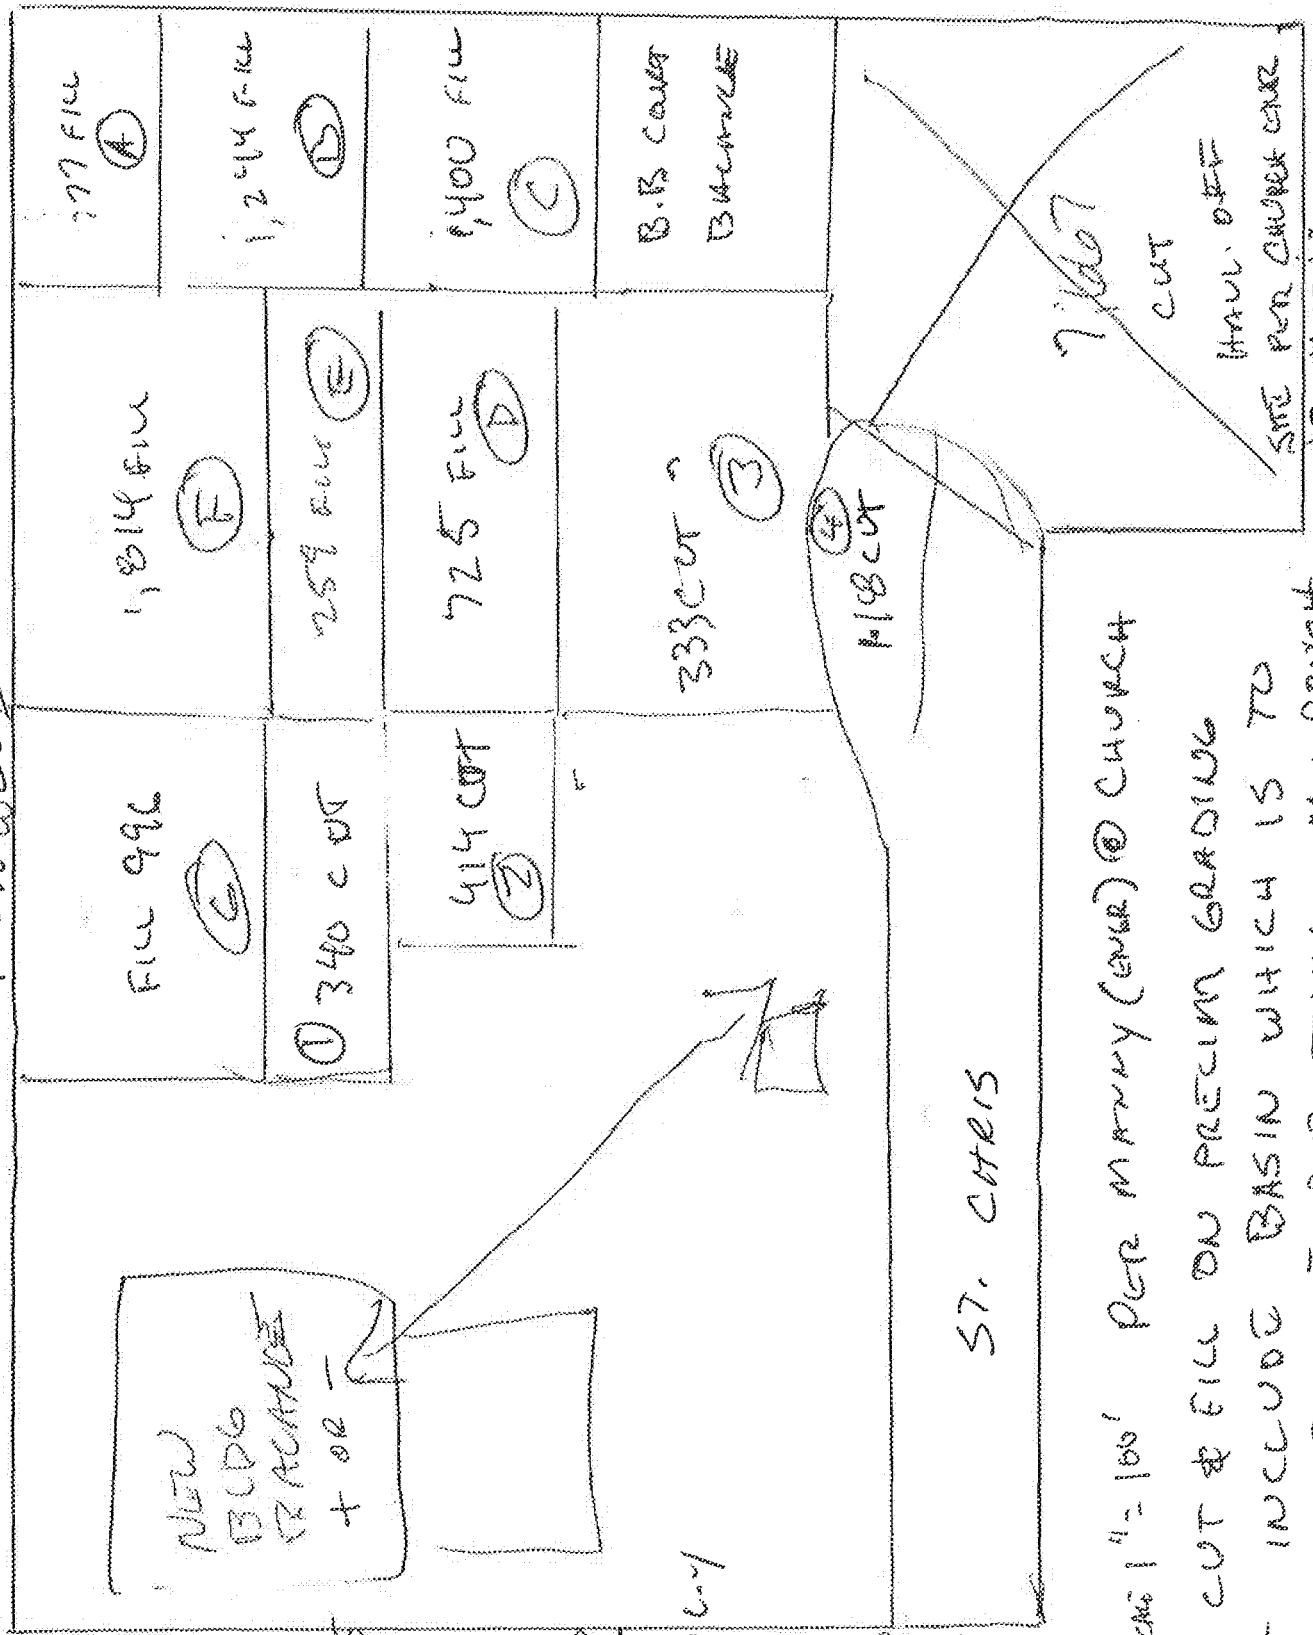 NEW
BLDG
BALANCE
+ OR -
FILL 996
G
① 340 CUT
414 CUT
②
1,814 FILL
F
259 FILL E
725 FILL
D
333 CUT
③
④
1,118 CUT
777 FILL
A
1,244 FILL
B
1,400 FILL
C
B.B COURT
BALANCE
7,607
CUT
HAUL OFF
SITE PER CHURCH ENGR
ST. CHRIS
1"= 100' PER MANNY (ENGR) @ CHURCH
CUT & FILL ON PRELIM GRADING
INCLUDE BASIN WHICH IS TO